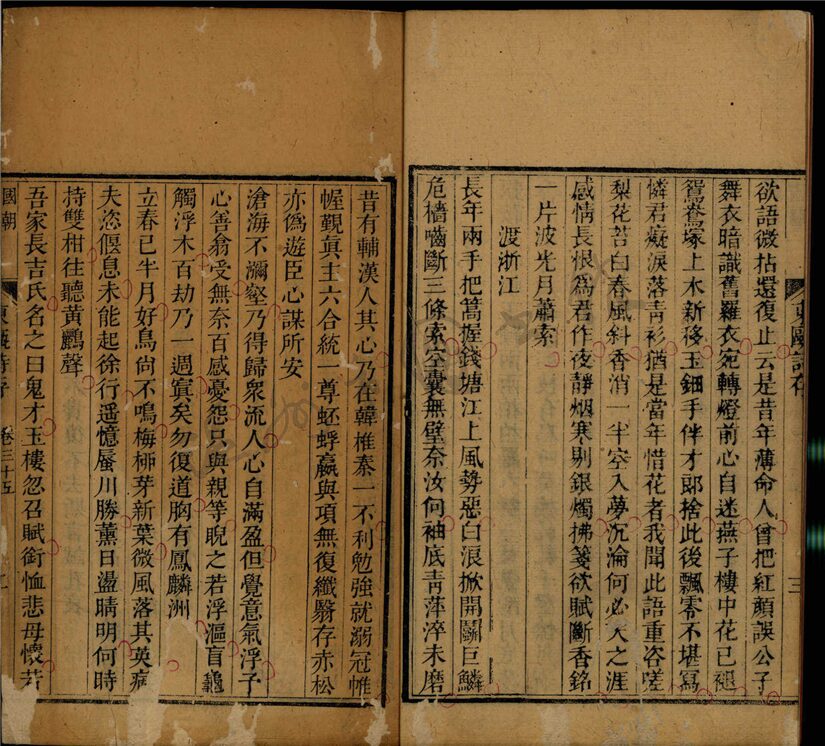 欲語微拈還復止云是昔年薄命人曾把紅顏誤公子
舞衣暗識舊羅衣宛轉燈前心自迷燕子樓中花已褪
鴛鴦塚上木新移玉鈿手伴才郎捨此後飄零不堪寫
憐君癡淚落青衫猶是當年惜花者我聞此語重咨嗟
梨花苦白春風斜香消一半空入夢沉淪何必天之涯
感情長恨為君作夜靜烟寒剔銀燭拂箋欲賦斷香銘
一片波光月蕭索
渡浙江
長年兩手把篙握錢塘江上風勢惡白浪掀開鬭巨鱗
危檣嚙斷三條索空囊無壁奈汝何袖底靑萍淬未磨
三
昔有輔漢人其心乃在韓椎秦一不利勉強就溺冠帷
幄覲眞主六合統一尊蚍蜉嬴與項無復纖翳存赤松
亦僞遊臣心謀所安
滄海不瀰壑乃得歸衆流人心自滿盈但覺意氣浮子
心善翕受無奈百感憂怨只與親等睨之若浮漚盲龜
觸浮木百劫乃一遇寘矣勿復道胸有鳳麟洲
立春已半月好鳥尙不鳴梅栁芽新葉微風落其英病
夫恣偃息未能起徐行遥憶蜃川勝薰日盪晴明何時
持雙柑往聽黃鸝聲
吾家長吉氏名之曰鬼才玉樓忽召賦銜恤悲母懷若
國朝
卷三十五